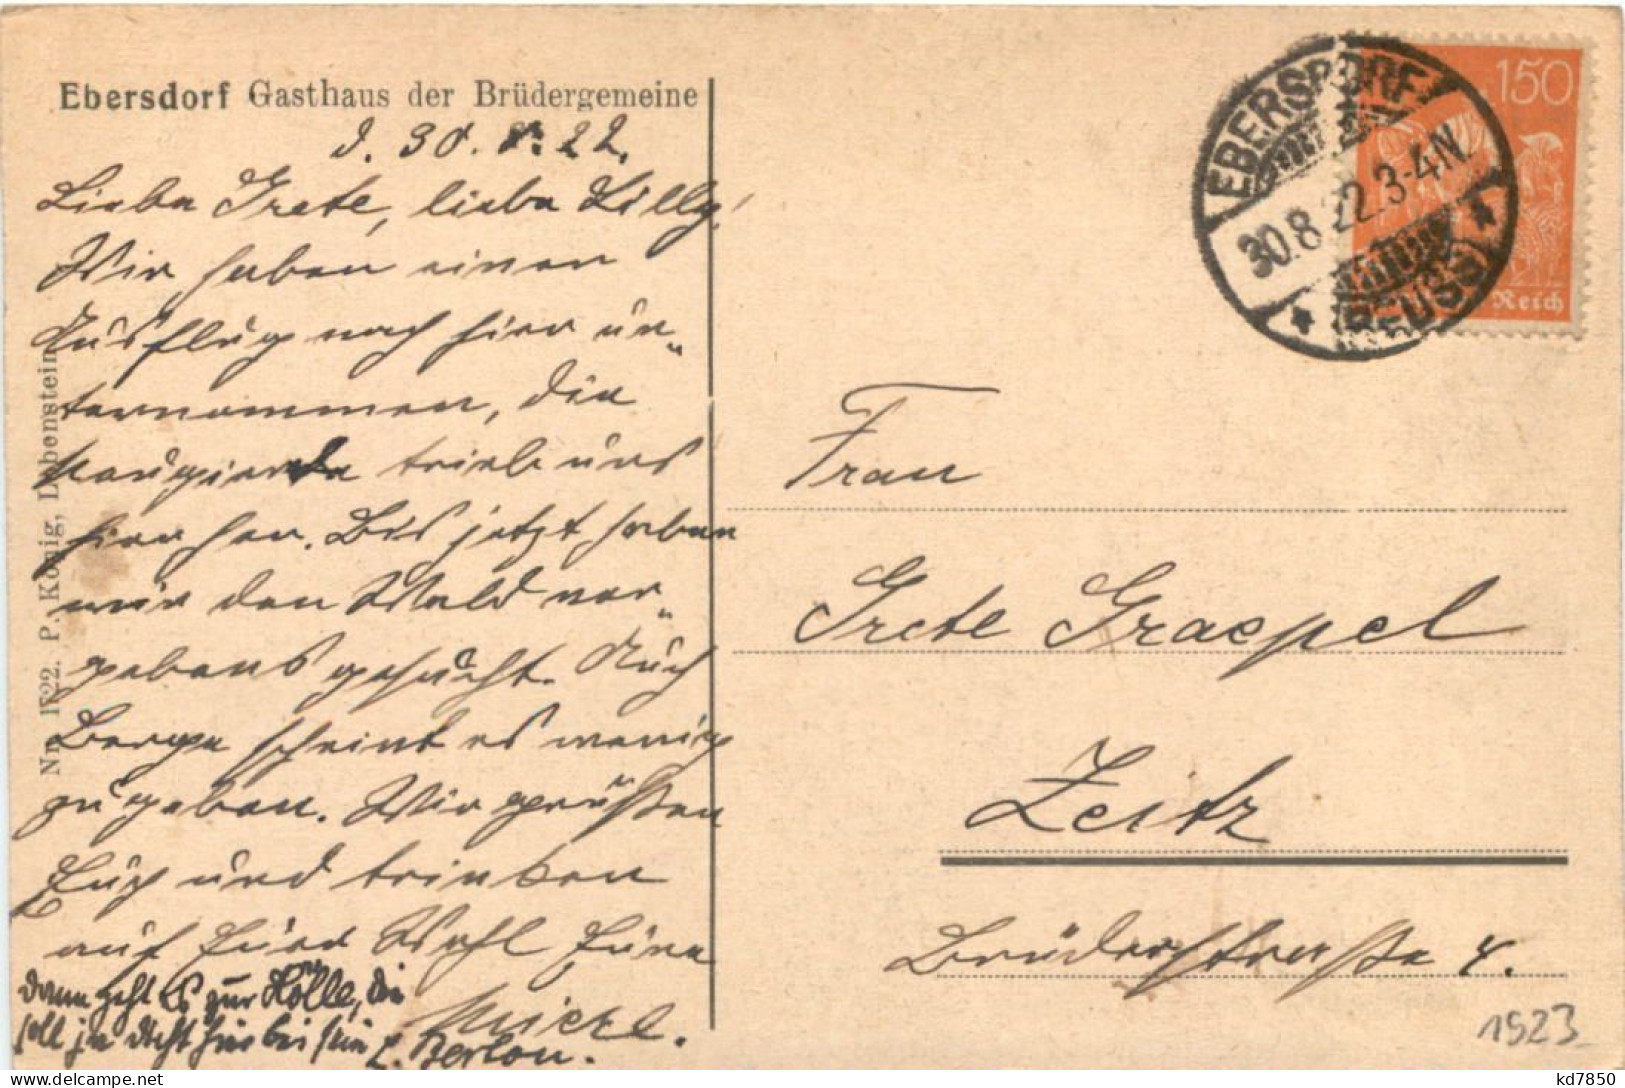 Ebersdorf Gasthaus der Brüdergemeine
d. 30. 8. 22.
Liebe Grete, liebe Lilly!
Wir haben einen
Ausflug nach hier un-
ternommen, die
Neugierde trieb uns
hier her. Bis jetzt haben
wir den Wald ver-
gebens gesucht. Auch
Berge scheint es wenig
zu geben. Wir grüßen
Euch und trinken
auf Euer Wohl Eure
dann geht es zur Hölle, die
soll ja dicht hier bei sein
Nr. 1722. P. König, Lobenstein
EBERSDORF
30.8.22.3-4N.
(REUSS)
150
Reich
Frau
Grete Graepel
Zeitz
Brüderstraße 4.
1923
kd7850